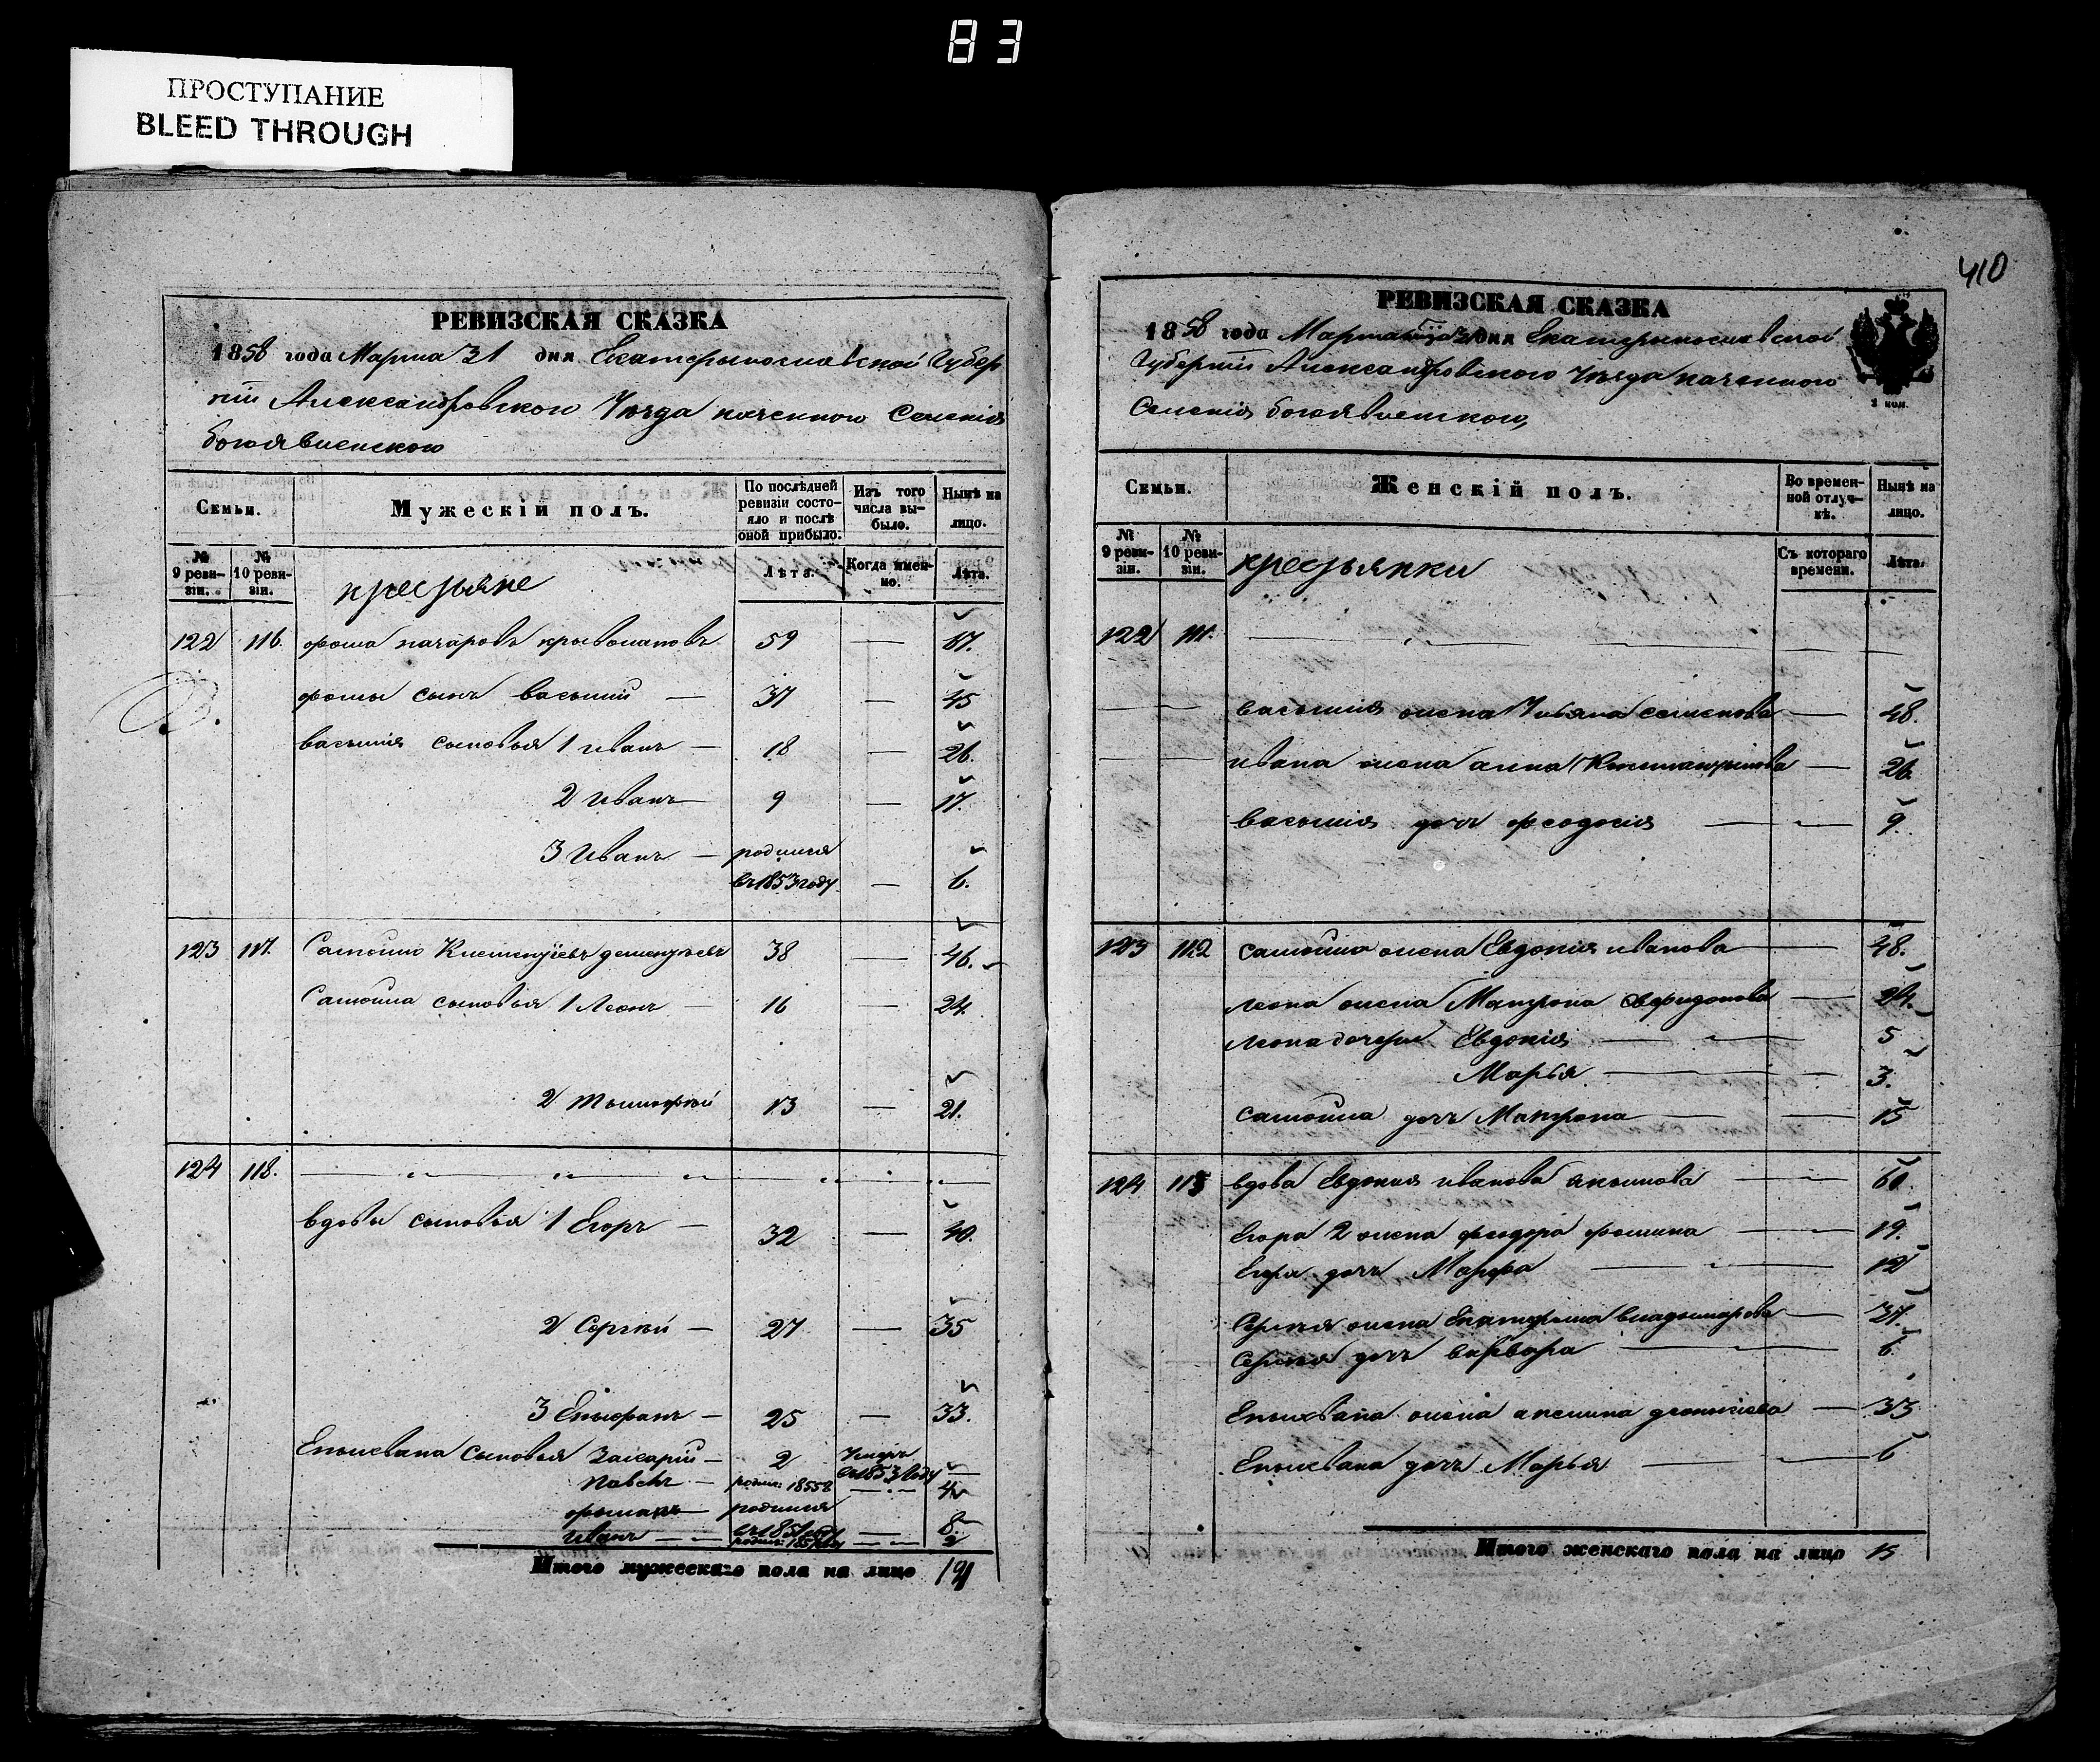 83
ПРОСТУПАНИЕ
BLEED THROUGH
РЕВИЗСКАЯ СКАЗКА
1858 года Марта 31 дня Екатерынославской Губер
ніи Александровского Уезда казенного Селенія
богоявленского
Семьи.
Мужескій полъ.
По послѣдней ревизіи состояло и послѣ оной прибыло.
Изъ того числа выбыло.
Нынѣ на лицо.
№ 9 ревизіи.
№ 10 ревизіи.
крестьяне
Лѣта.
Когда именно.
Лѣта.
122 116. фома назаровъ 59 — 67.
фомы сынъ василий — 37 — 45
василия сыновья 1 иванъ — 18 — 26.
2 иванъ — 9 — 17.
3 иванъ — родился
въ 1853 году — 6.
123 117. Самойло Климентіевъ дементьевъ 38 — 46.
Самойла сыновья 1 Леонъ — 16 — 24.
2 тимофей 13 — 21.
124 118.
вдовы сыновья 1 Егоръ — 32 — 40.
2 Сергий — 27 — 35
3 Епифанъ — 25 — 33.
сыновья Захарій — 2 Умеръ
въ 1853 году —
павелъ — 1855
родился
иванъ
Итого мужескаго пола на лицо
410
РЕВИЗСКАЯ СКАЗКА
1858 года Марта 31 дня Екатерынославской
Губерніи Александровского Уезда казенного
Селенія богоявленского,
Семьи.
Женскій полъ.
Во временной отлучкѣ.
Нынѣ на лицо.
№ 9 ревизіи.
№ 10 ревизіи.
крестьянки
Съ котораго времени.
Лѣта.
122
василия жена Ульяна семенова — 48.
ивана жена анна — 26.
василия дочь феодосия — 9.
123 112 самойла жена Евдокия иванова — 48.
леона жена Матрона — 24.
леона дочери Евдокия — 5
Марья — 3.
самойла дочь Матрона — 15
124 113 вдова Евдокия иванова — 60
Егора 2 жена феодора фомина — 19.
Егора дочь Марфа — 12
Сергия жена Екатерина владимирова — 37.
Сергия дочь варвара — 6.
жена аксинья — 33
дочь Марья — 6
Итого женскаго пола на лицо 15